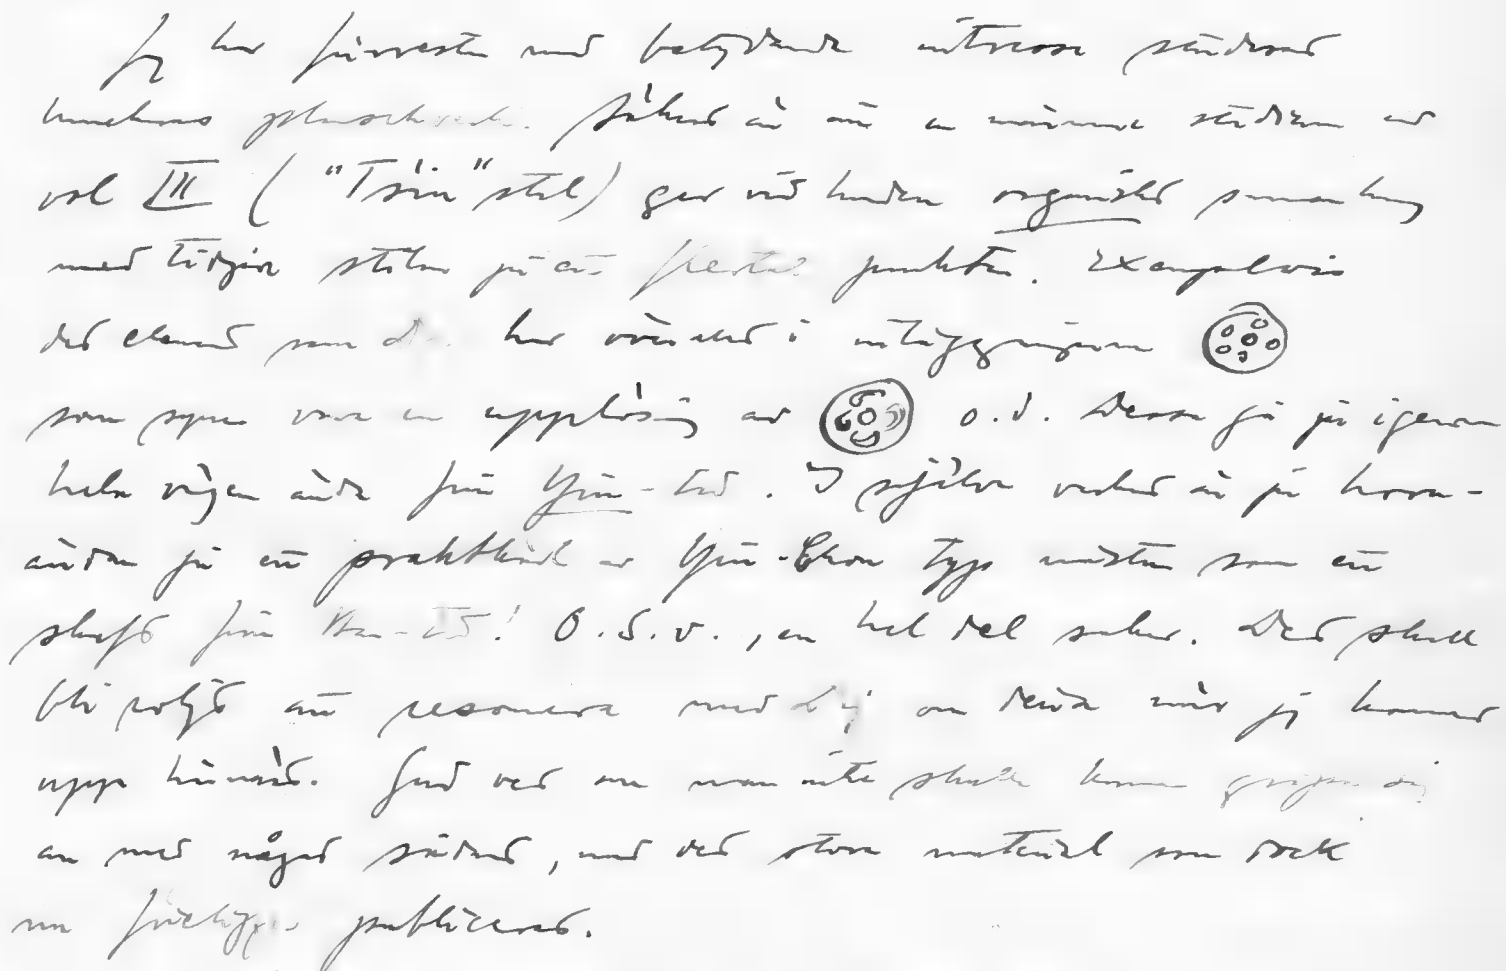 Jag har förresten med betydande intresse studerat
hunehuns planschverk. Säkert är att en närmare studium av
vol III ("Tsin" stil) ger vid handen organiskt samanhang
med tidigare stilar på ett flertal punkter. Exempelvis
det element som Du har observerat i utläggningarna
som synes vara en upplösning av o.d. Dessa gå ju igenom
hela vägen ända från Yin-tid. I själva verket är ju
ändan på ett praktskaft av Yin-Chou typ nästan som ett
skaft från Han-tid! O.S.v., en hel del saker. Det skall
bli roligt att resonera med Dig om detta när jag kommer
upp härnäst. Gud vet om man inte skulle kunna gripa sig
an med något sådant, med det stora material som dock
nu föreligger publicerat.